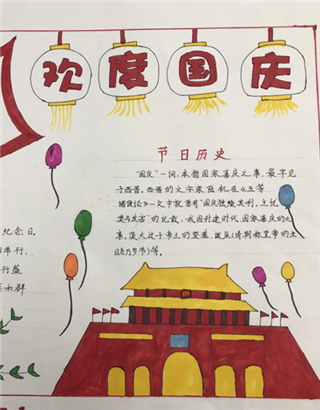 欢度国庆
节日历史
“国庆”一词，本指国家喜庆之事，最早见
于西晋。西晋的文字家陆机在《五等
诸侯论》一文中就曾有“国庆独飨其利，主忧
莫与其害”的记载，我国封建时代、国家喜庆的大
事，莫大过于帝王的登基、诞辰(清朝称皇帝的生
日为万岁节)等。
纪念日